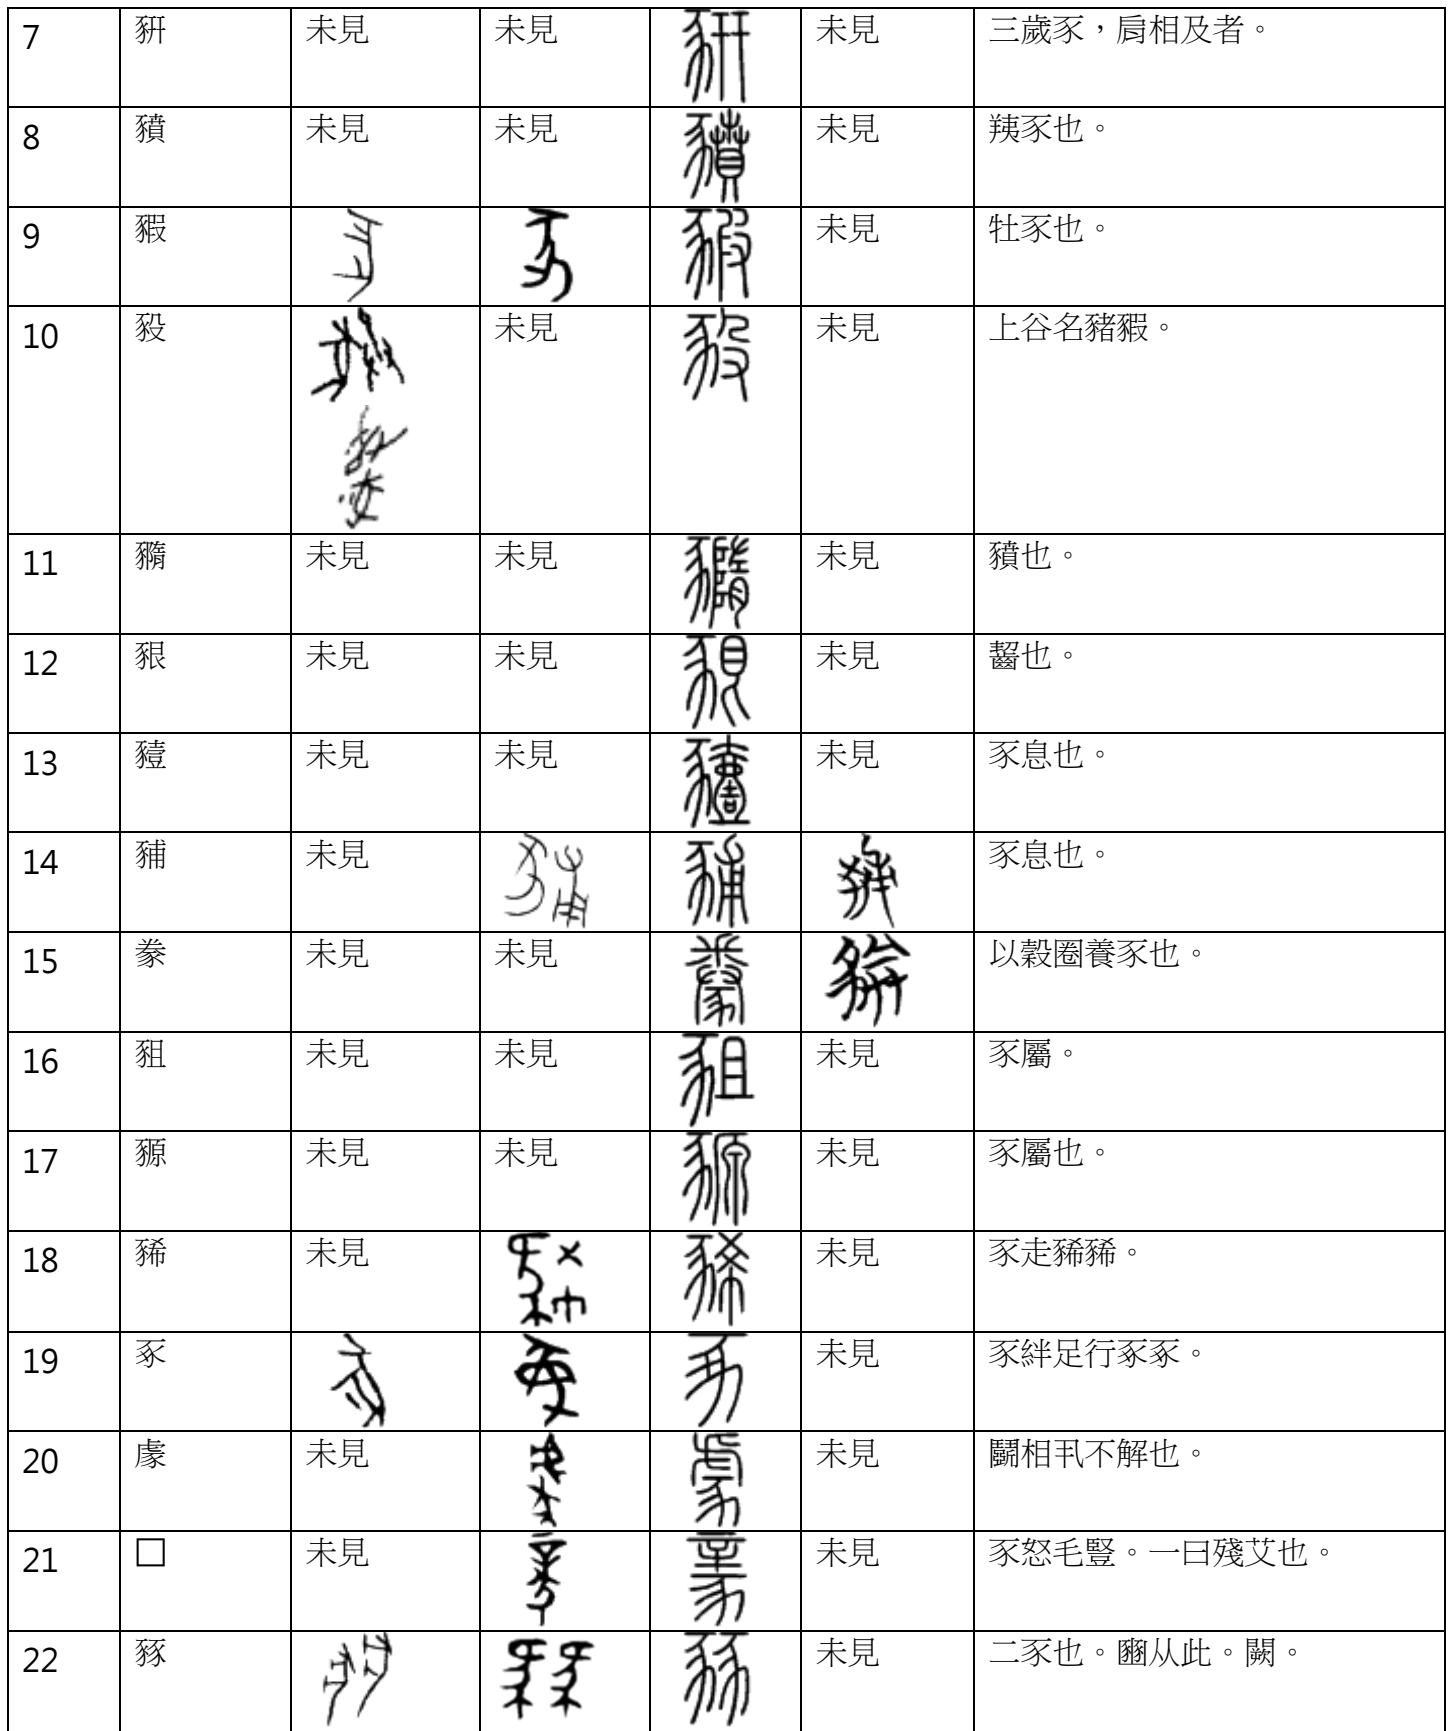 7 豜 未見 未見 未見 三歲豕，肩相及者。
8 豶 未見 未見 未見 羠豕也。
9 豭 未見 牡豕也。
10 豛 未見 未見 上谷名豬豭。
11 䝐 未見 未見 未見 豶也。
12 豤 未見 未見 未見 齧也。
13 豷 未見 未見 未見 豕息也。
14 豧 未見 豕息也。
15 豢 未見 未見 以穀圈養豕也。
16 豠 未見 未見 未見 豕屬。
17 豲 未見 未見 未見 豕屬也。
18 豨 未見 未見 豕走豨豨。
19 豖 未見 豕絆足行豖豖。
20 豦 未見 未見 鬭相丮不解也。
21 □ 未見 未見 豕怒毛豎。一曰殘艾也。
22 豩 未見 二豕也。豳从此。闕。